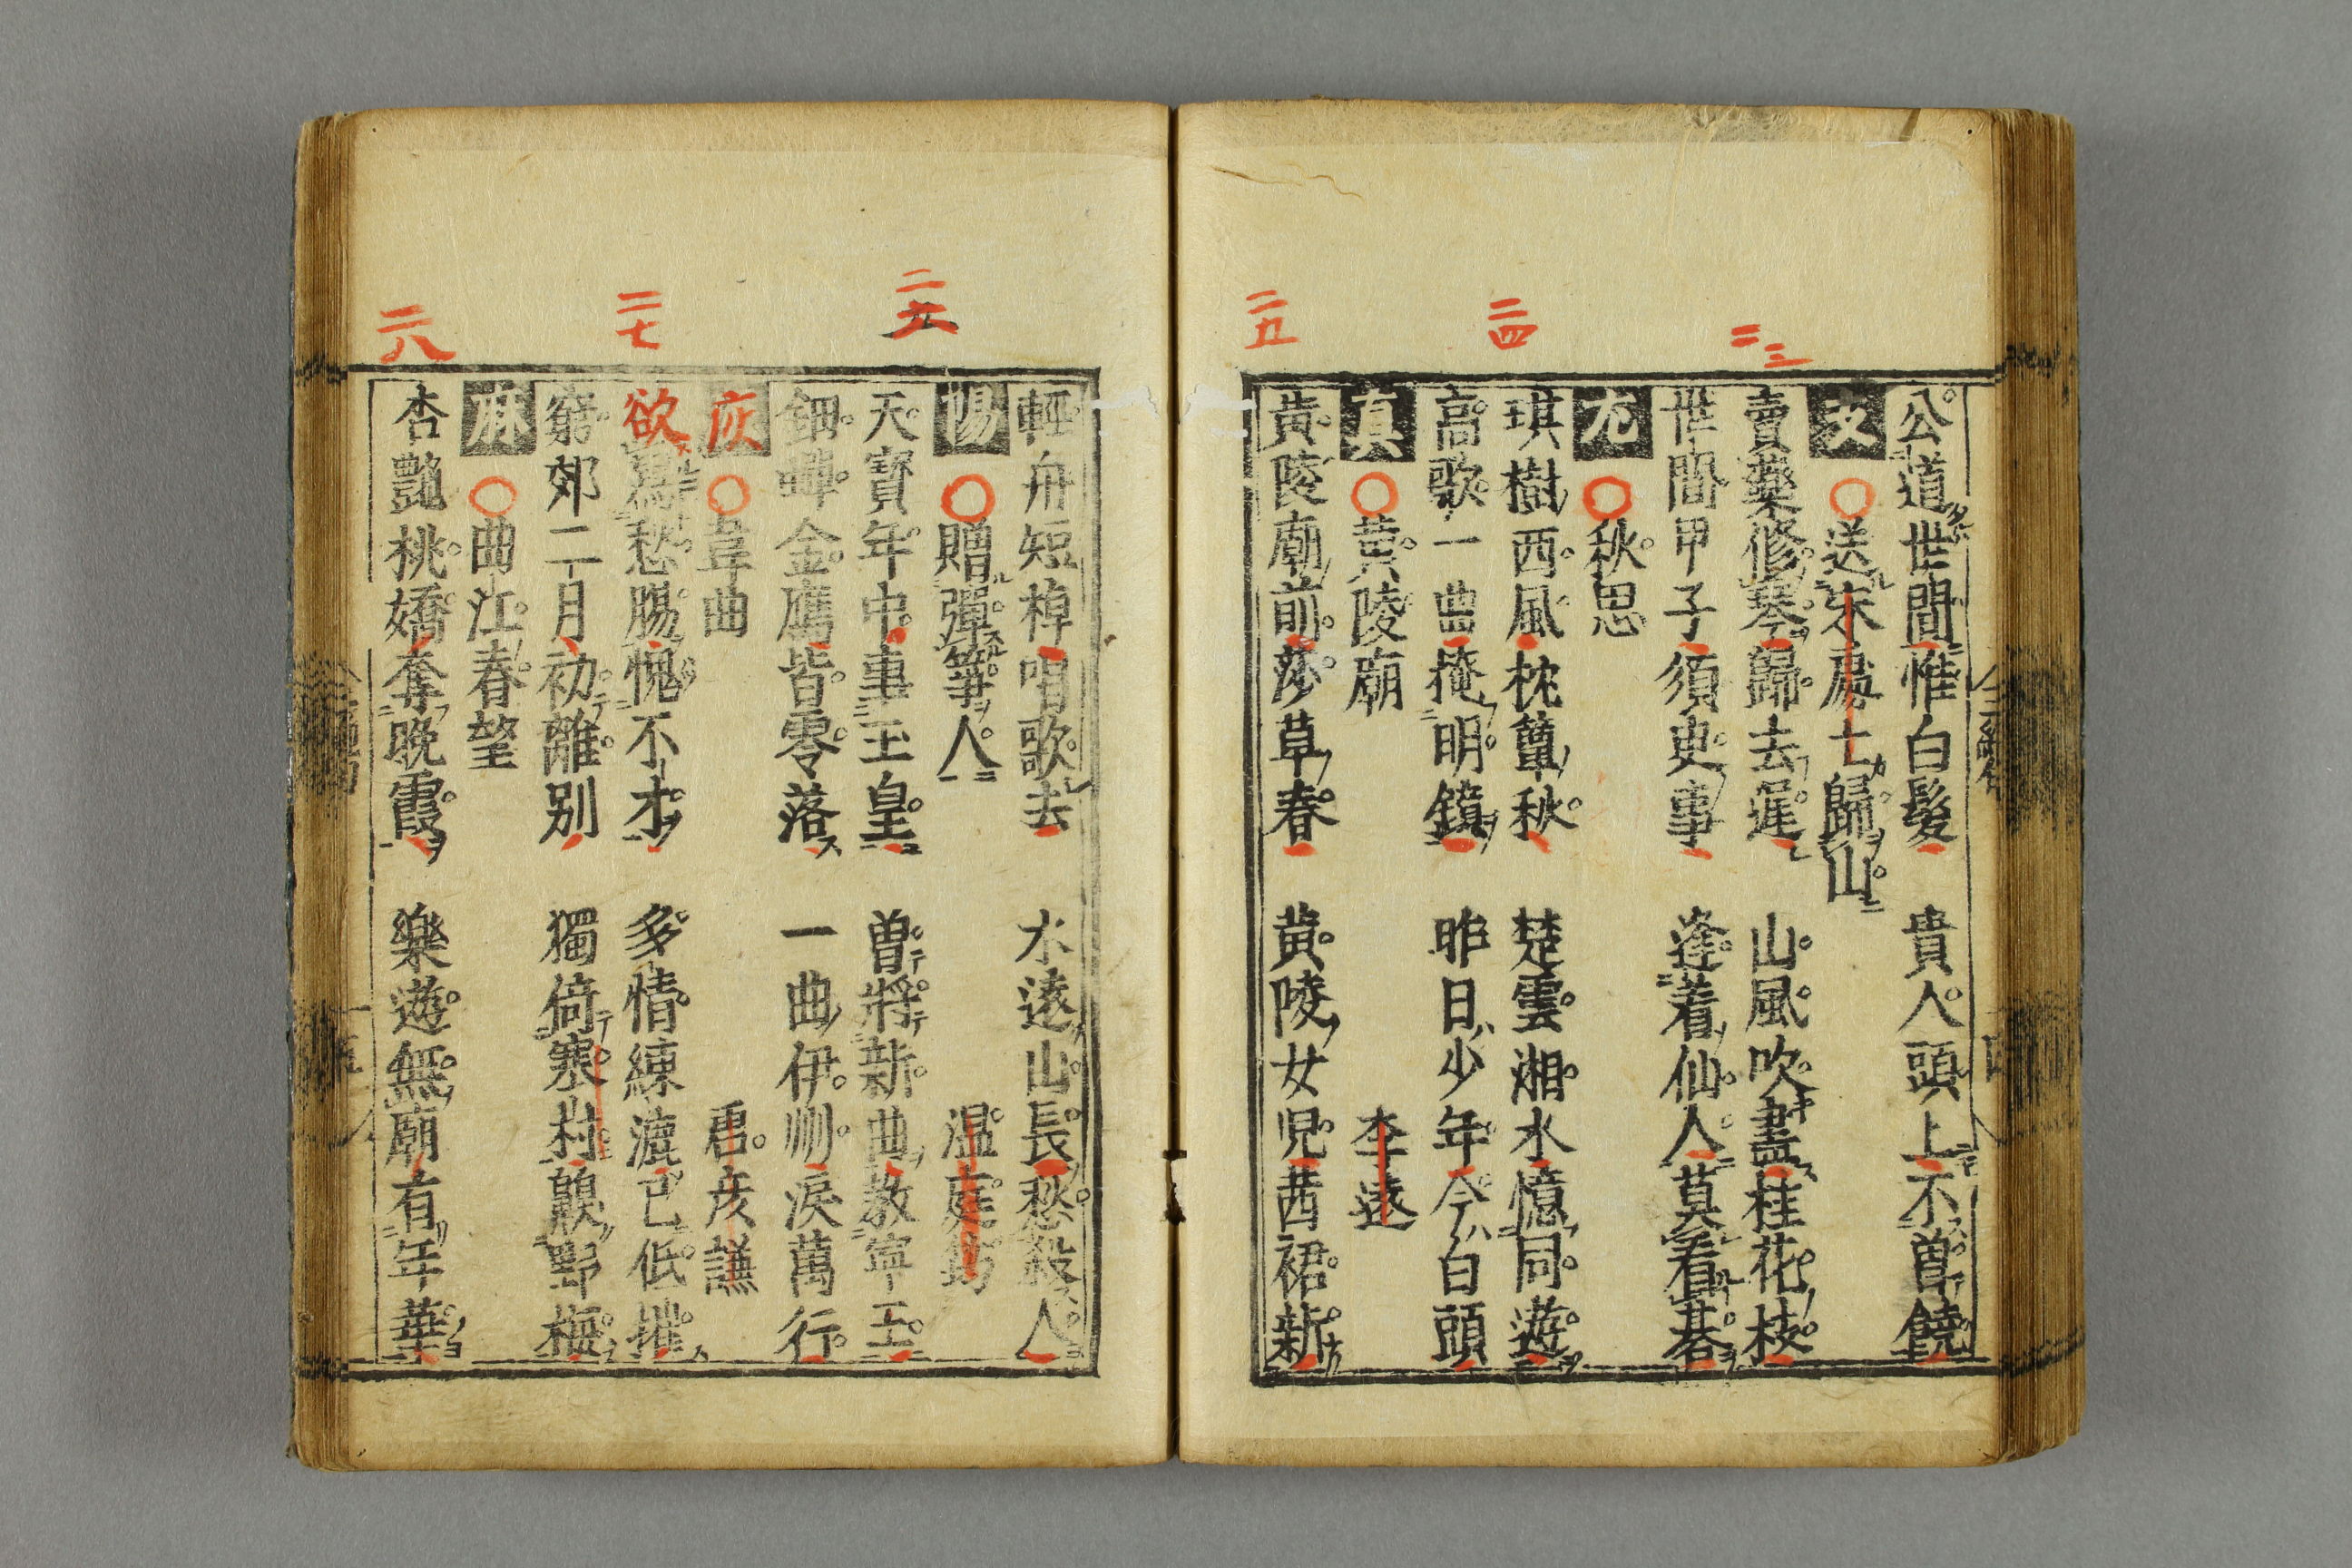 二三
二四
二五
公道世間惟白髮 貴人頭上不曽饒
文 ○送朱處士歸山
賣藥修琴歸去遲 山風吹盡桂花枝
世間甲子須臾事 逢着仙人莫看碁
尤 ○秋思
琪樹西風枕簟秋 楚雲湘水憶同遊
高歌一曲掩明鏡 昨日少年今白頭
真 ○黄陵廟 李遠
黄陵廟前莎草春 黄陵女児茜裙新
二六
二七
二八
輕舟短棹唱歌去 水遠山長愁殺人
陽 ○贈彈箏人 温庭筠
天寳年中事玉皇 曽將新曲教寧王
鈿蟬金鴈皆零落 一曲伊州淚萬行
灰 ○韋曲 唐彦謙
欲寫愁腸愧不才 多情練漉已低摧
窮郊二月初離別 獨倚寒村齅野梅
麻 ○曲江春望
杏艶桃嬌奪晚霞 樂遊無廟有年華